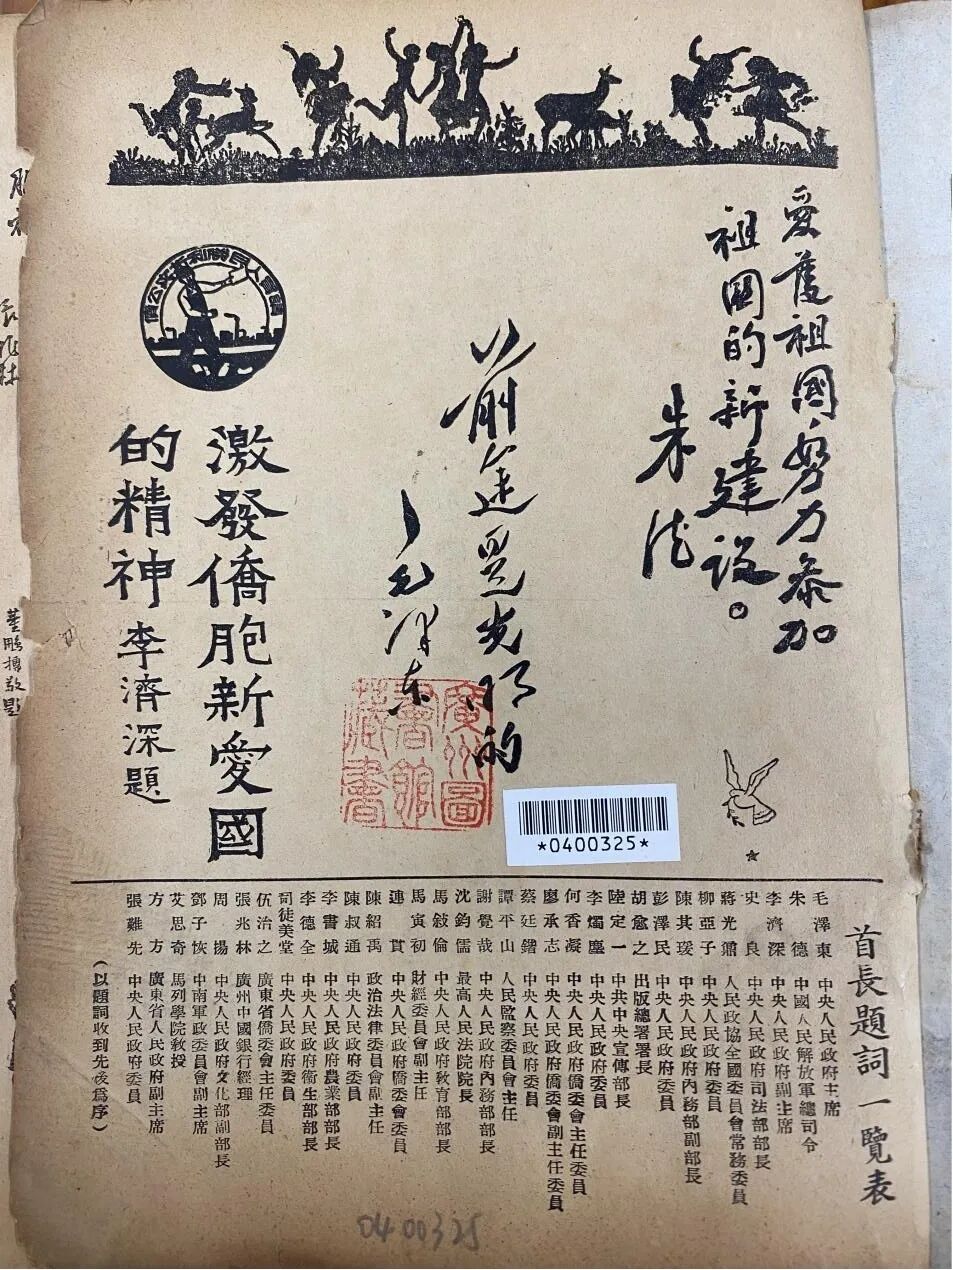 愛護祖國，努力參加
祖國的新建設。
朱德
前途是光明的
毛澤東
購買人民勝利折實公債
激發僑胞新愛國
的精神 李濟深題
廣州圖
書館
藏書
*0400325*
首長題詞一覽表
毛澤東 中央人民政府主席
朱德 中國人民解放軍總司令
李濟深 中央人民政府副主席
史良 中央人民政府司法部部長
蔣光鼐 人民政協全國委員會常務委員
柳亞子 中央人民政府委員
陳其瑗 中央人民政府內務部副部長
彭澤民 中央人民政府委員
胡愈之 出版總署署長
陸定一 中共中央宣傳部長
李燭塵 中央人民政府委員
何香凝 中央人民政府僑委會主任委員
廖承志 中央人民政府僑委會副主任委員
蔡廷鍇 中央人民政府委員
譚平山 人民監察委員會主任
謝覺哉 中央人民政府內務部部長
沈鈞儒 最高人民法院院長
馬敍倫 中央人民政府教育部部長
馬寅初 財經委員會副主任
連貫 中央人民政府僑委會委員
陳紹禹 政治法律委員會副主任
陳叔通 中央人民政府委員
李書城 中央人民政府農業部部長
李德全 中央人民政府衛生部部長
司徒美堂 中央人民政府委員
伍治之 廣東省僑委會主任委員
張兆林 廣州中國銀行經理
周揚 中央人民政府文化部副部長
鄧子恢 中南軍政委員會副主席
艾思奇 馬列學院教授
方方 廣東省人民政府副主席
張難先 中央人民政府委員
（以題詞收到先後為序）
0400325
董鵬摶敬題